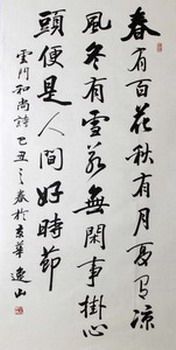 春有百花秋有月夏有凉
風冬有雪若無閑事掛心
頭便是人間好時節
雲門和尚詩己丑之春於京華逸山